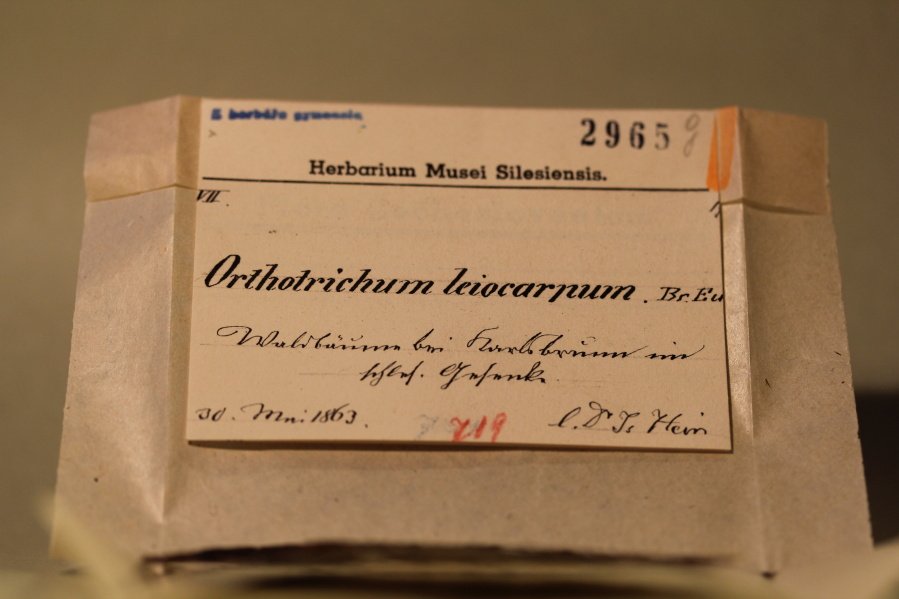 2965 g
Herbarium Musei Silesiensis.
VII.
Orthotrichum leiocarpum. Br. Eu
Waldbäume bei Karlsbrunn im
schles. Gesenke.
30. Mai 1863.
719
l. Dr